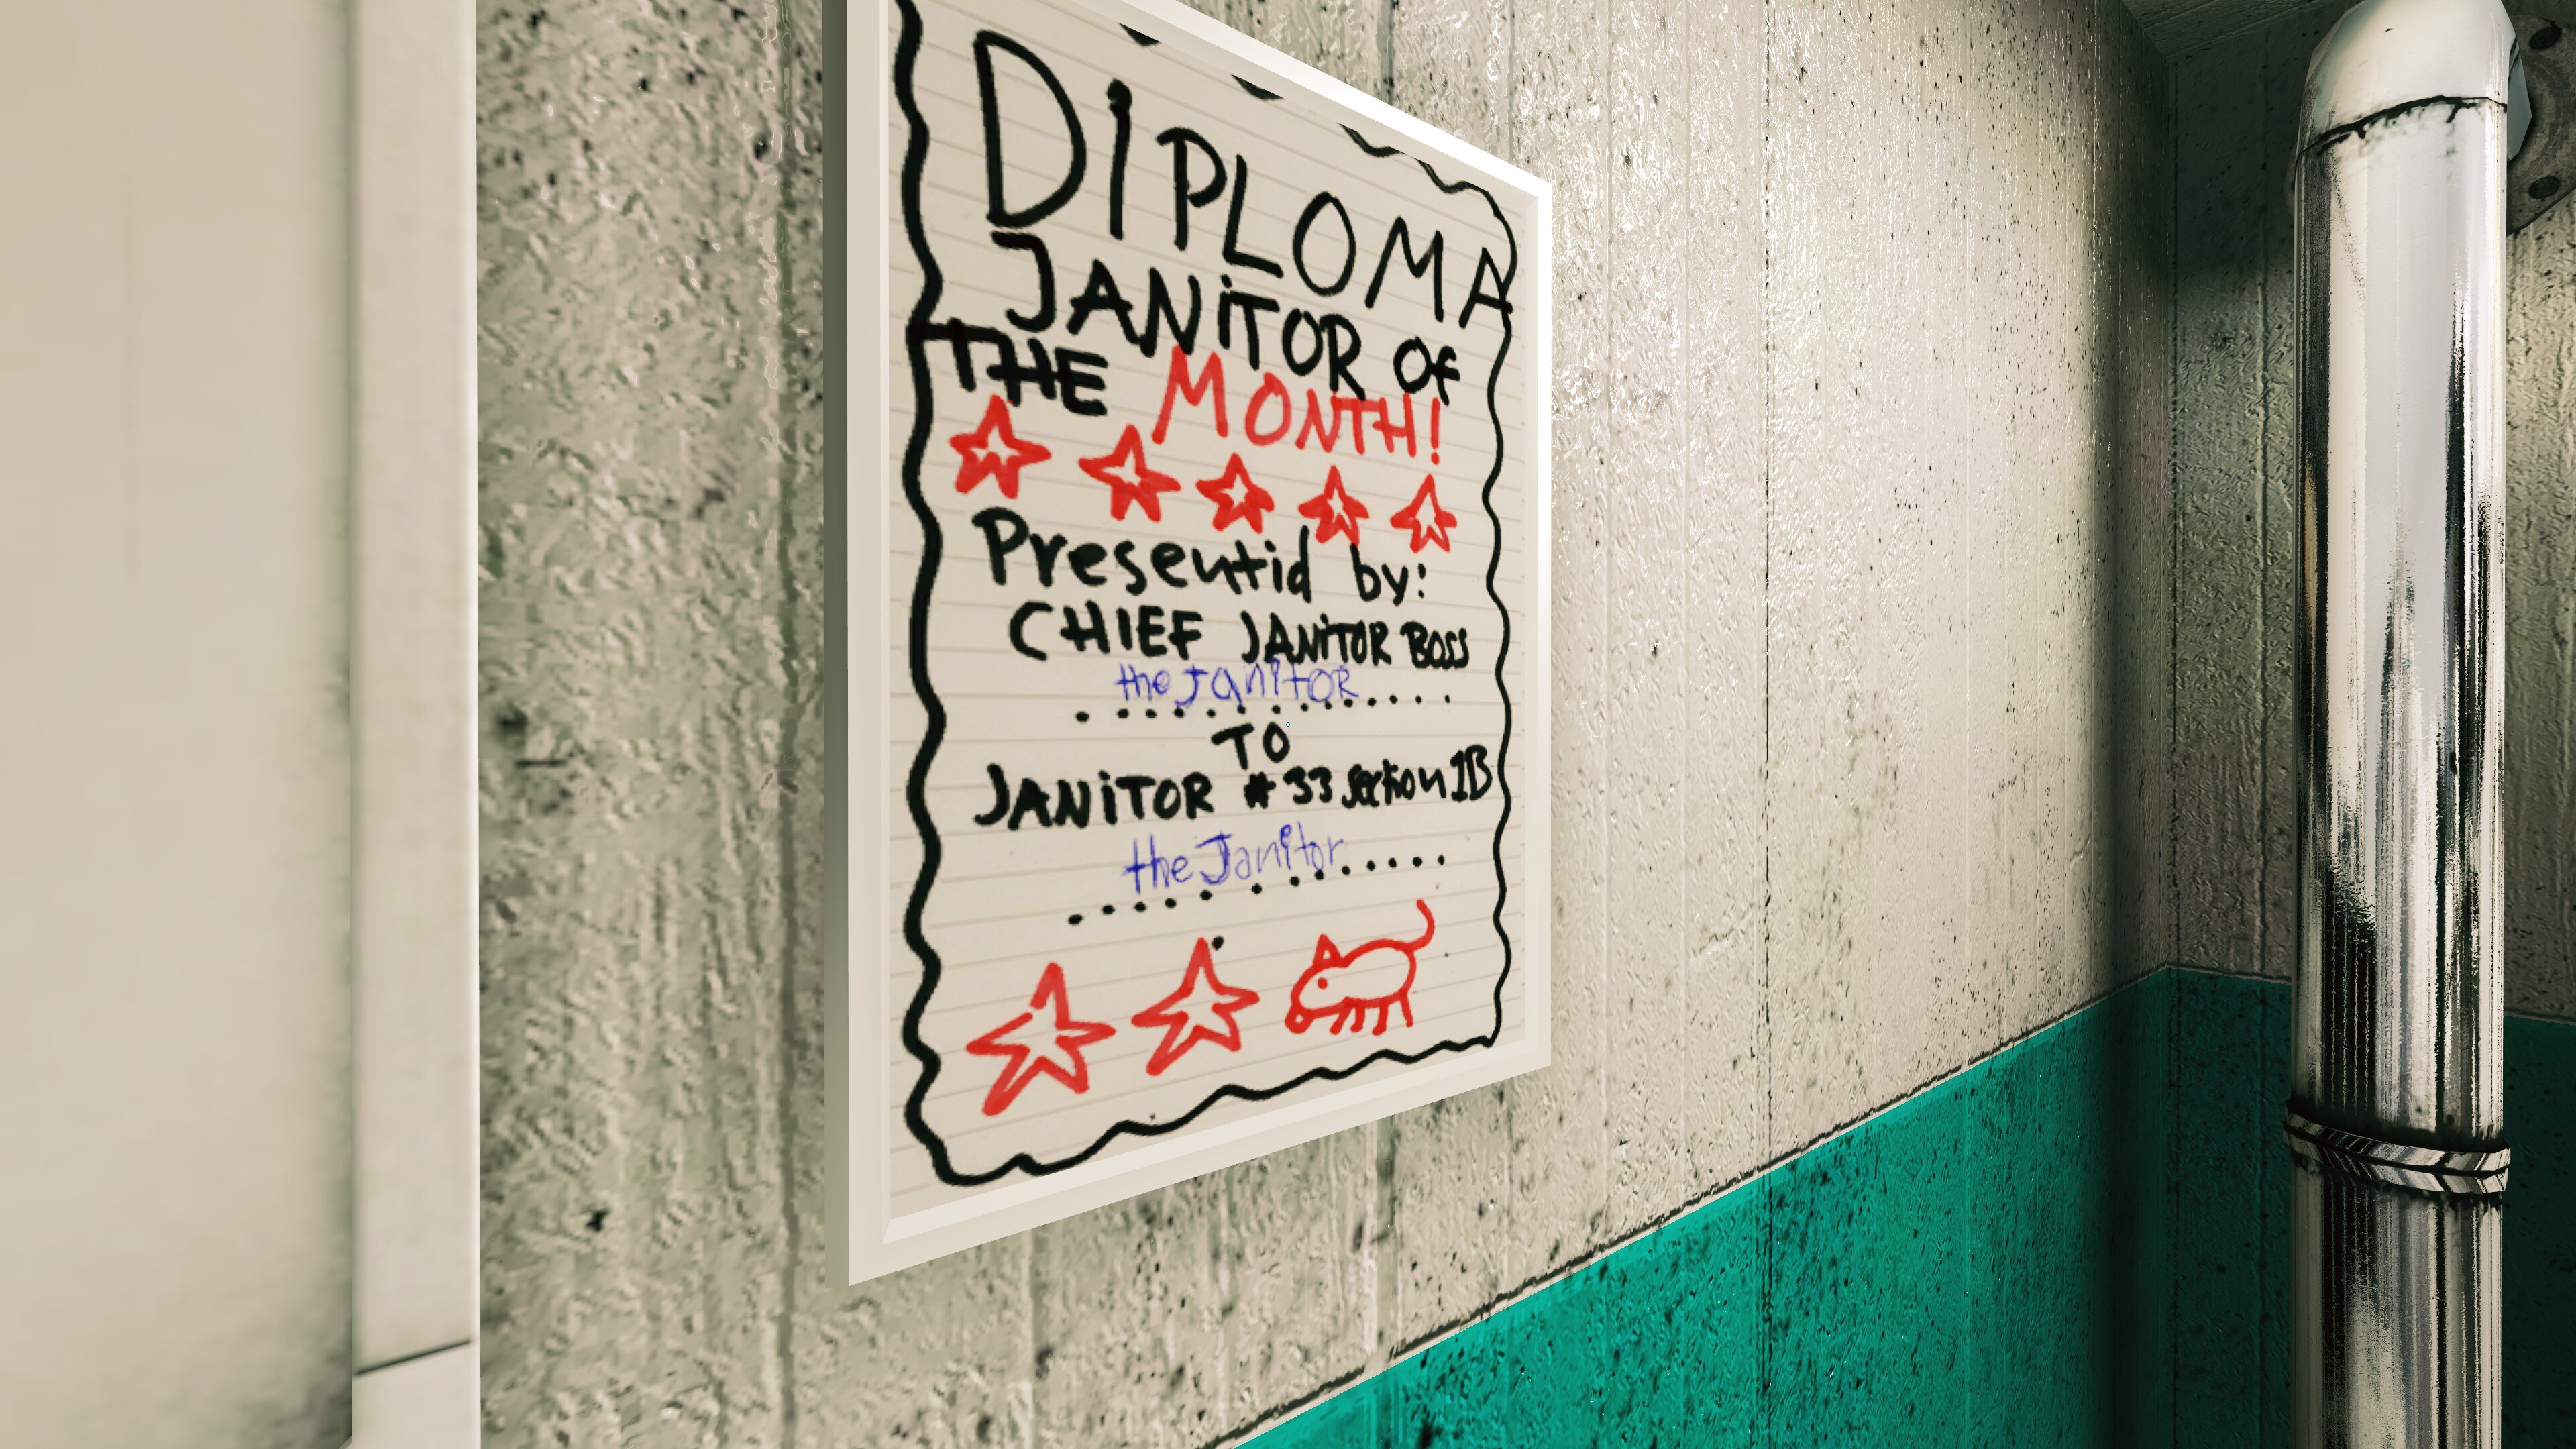 DiPLOMA
JANiTOR Of
THE MONTH!
Presentid by:
CHIEF JANiTOR BOSS
the JanitOR..............
TO
JANiTOR # 33 section 1B
the Janitor..............